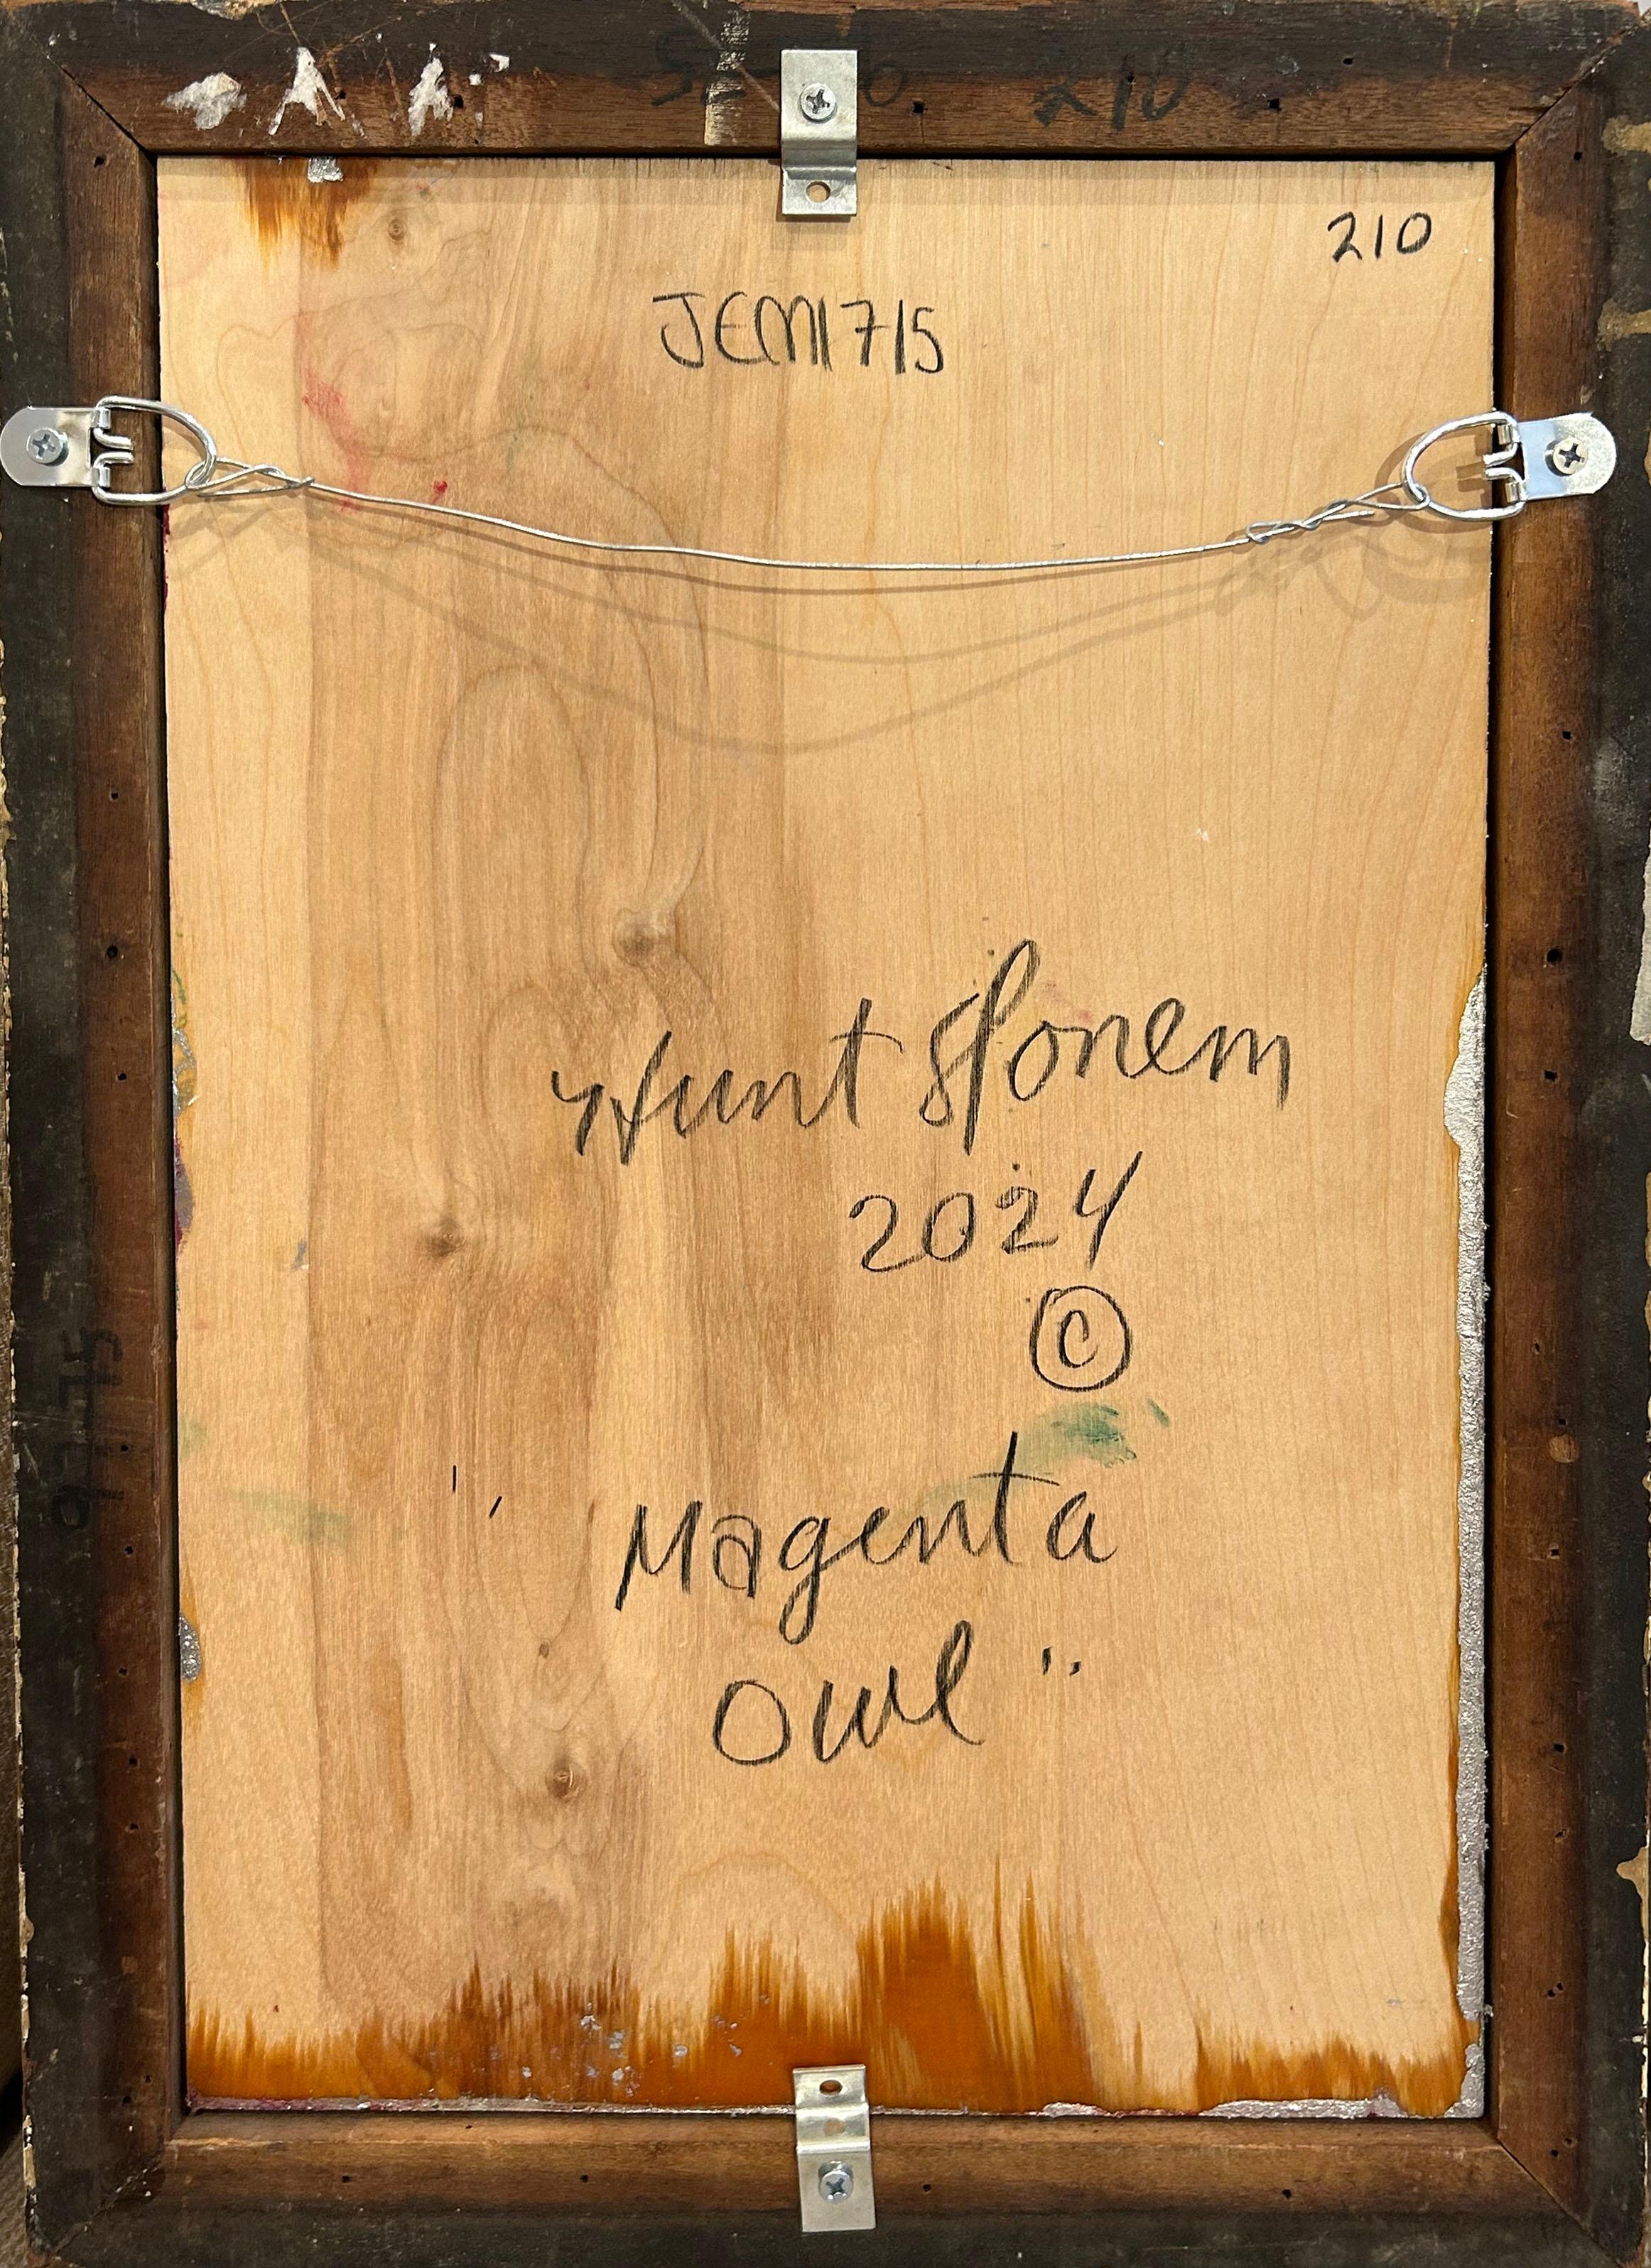 210
210
JEM1715
Hunt Slonem
2024
©
" Magenta
Owl "